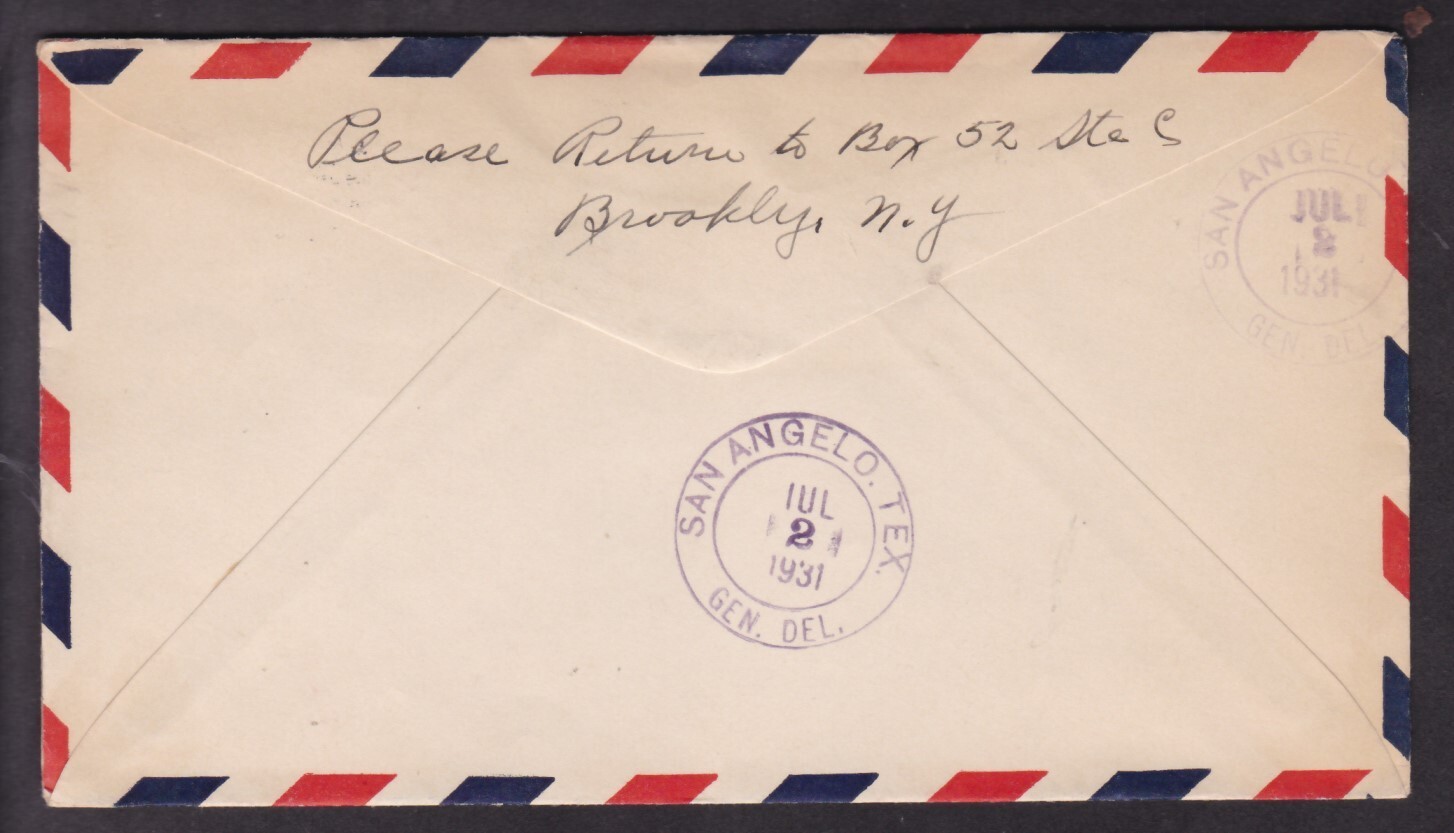 Please Return to Box 52 Sta C
Brooklyn, N.Y
SAN ANGELO
JUL
2
1931
GEN. DEL.
SAN ANGELO. TEX.
JUL
2
1931
GEN. DEL.